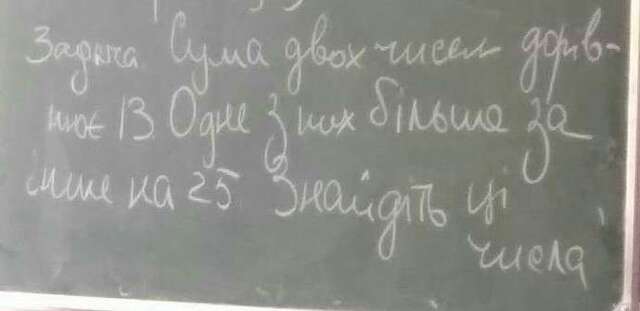 Задача Сума двох чисел дорів-
нює 13 Одне з них більше за
інше на 25 Знайдіть ці
числа